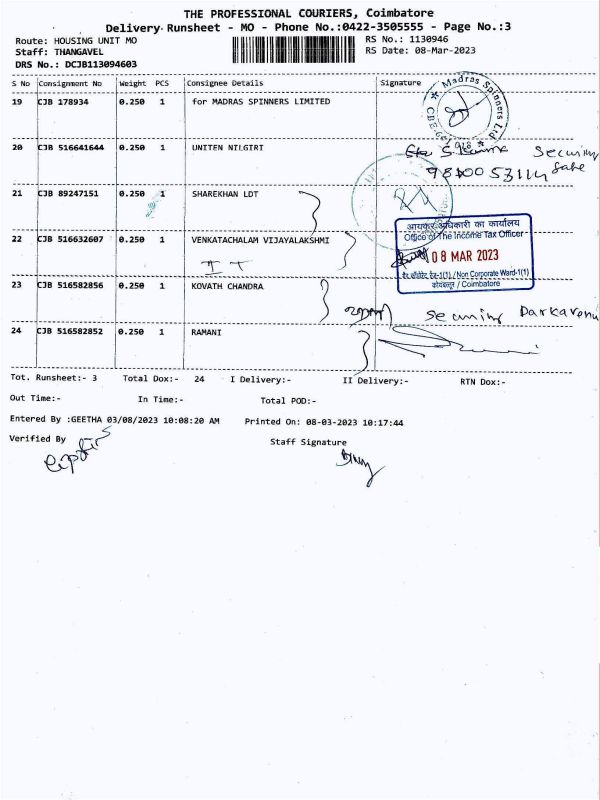 THE PROFESSIONAL COURIERS, Coimbatore
Delivery Runsheet - MO - Phone No.:0422-3505555 - Page No.:3
Route: HOUSING UNIT MO RS No.: 1130946
Staff: THANGAVEL RS Date: 08-Mar-2023
DRS No.: DCJB113094603
S No Consignment No Weight PCS Consignee Details Signature
19 CJB 178934 0.250 1 for MADRAS SPINNERS LIMITED
Madras Spinners Ltd
20 CJB 516641644 0.250 1 UNITEN NILGIRI
Security
21 CJB 89247151 0.250 1 SHAREKHAN LDT
आयकर अधिकारी का कार्यालय
Office of The Income Tax Officer
08 MAR 2023
Non Corporate Ward-1(1)
कोयंबत्तूर / Coimbatore
22 CJB 516632607 0.250 1 VENKATACHALAM VIJAYALAKSHMI
I T
23 CJB 516582856 0.250 1 KOVATH CHANDRA
24 CJB 516582852 0.250 1 RAMANI
Tot. Runsheet:- 3 Total Dox:- 24 I Delivery:- II Delivery:- RTN Dox:-
Out Time:- In Time:- Total POD:-
Entered By :GEETHA 03/08/2023 10:08:20 AM Printed On: 08-03-2023 10:17:44
Verified By Staff Signature